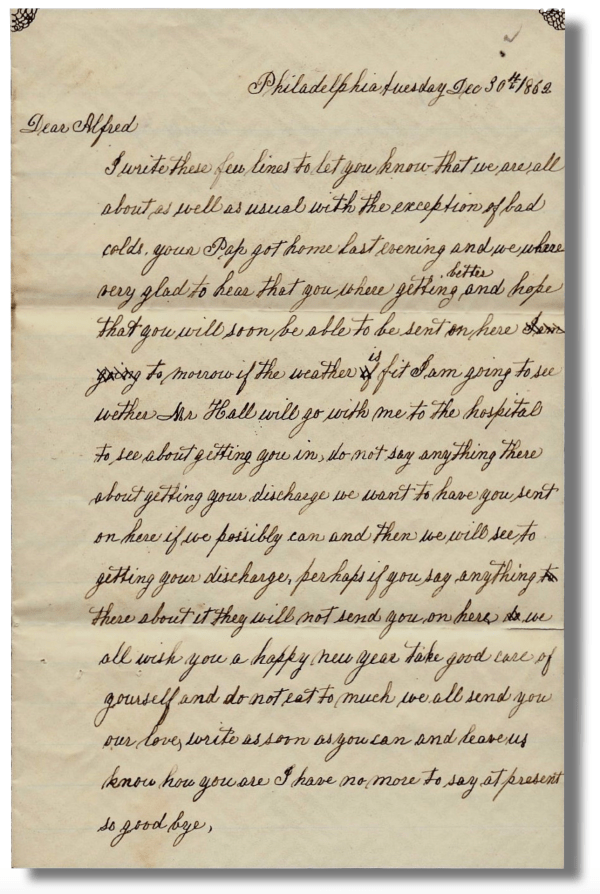 Philadelphia tuesday Dec 30th 1862
Dear Alfred
I write these few lines to let you know that we are all
about as well as usual with the exception of bad
colds. your Pap got home last evening and we where
very glad to hear that you where getting better and hope
that you will soon be able to be sent on here I am
going to morrow if the weather is fit I am going to see
wether Mr Hall will go with me to the hospital
to see about getting you in, do not say anything there
about getting your discharge we want to have you sent
on here if we possibly can and then we will see to
getting your discharge, perhaps if you say anything to
there about it they will not send you on here, we
all wish you a happy new year take good care of
yourself and do not eat to much we all send you
our love, write as soon as you can and leave us
know how you are I have no more to say at present
so good bye,